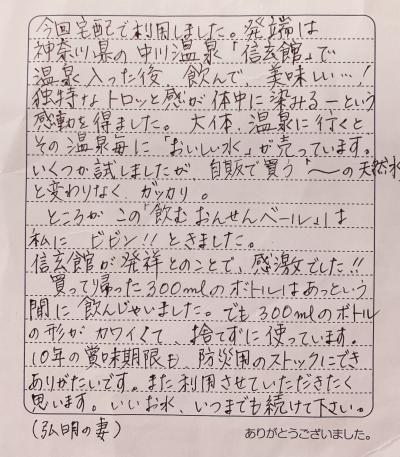 今回宅配で利用しました。発端は
神奈川県の中川温泉「信玄館」で
温泉入った後、飲んで、美味しい…!
独特なトロッと感が体中に染みるーという
感動を得ました。大体、温泉に行くと
その温泉毎に「おいしい水」が売っています。
いくつか試しましたが、自販で買う「〜の天然水
と変わりなく、ガッカリ。
ところがこの「飲むおんせんベール」は
私にビビン!!ときました。
信玄館が発祥とのことで、感激でした!!
買って帰った300mlのボトルはあっという
間に飲んじゃいました。でも300mlのボトル
の形がカワイくて、捨てずに使っています。
10年の賞味期限も防災用のストックにでき
ありがたいです。また利用させていただきたく
思います。いいお水、いつまでも続けて下さい。
(弘明の妻)
ありがとうございました。